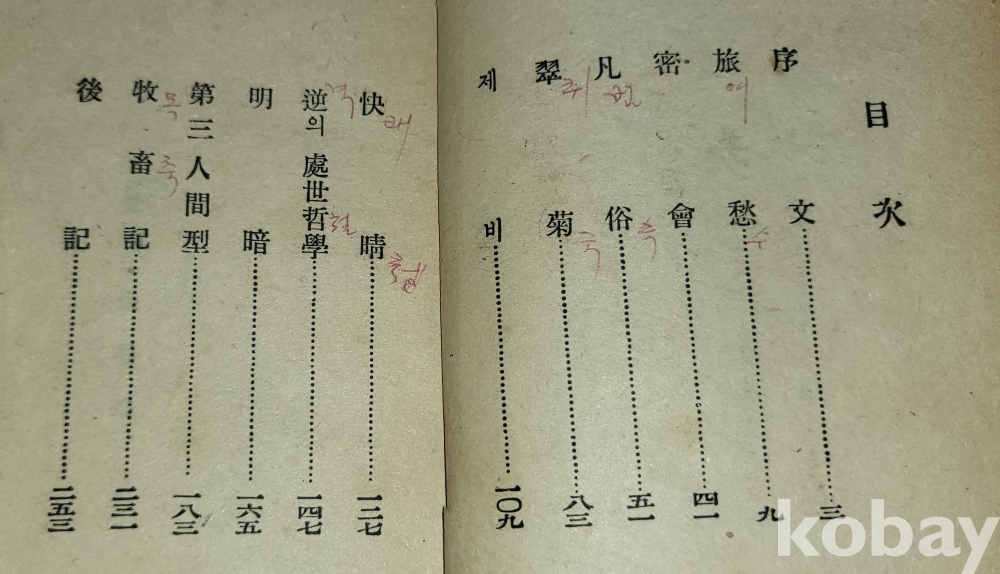 目次
序文 三
旅愁 九
여
수
密會 四一
凡俗 五一
속
翠菊 八三
취
국
제비 一〇九
快晴 一二七
쾌
逆의 處世哲學 一四七
역
철
明暗 一六五
第三人間型 一八三
牧畜記 二三一
목
축
後記 二五三
kobay